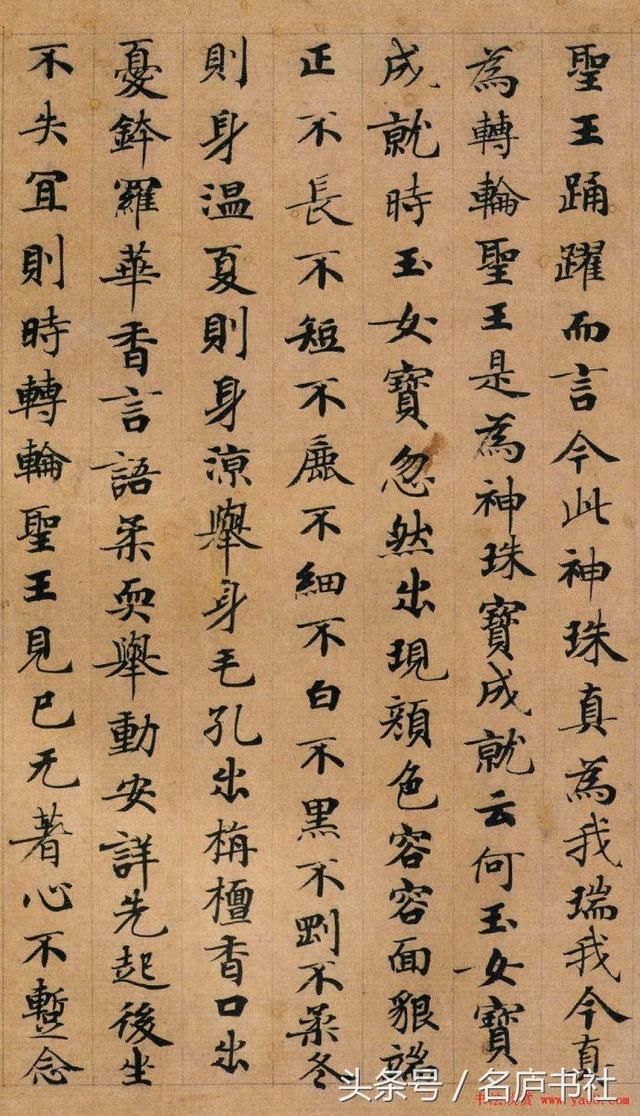 聖王踊躍而言今此神珠真為我瑞我今真
為轉輪聖王是為神珠寶成就云何玉女寶
成就時玉女寶忽然出現顏色容容面貌端
正不長不短不麁不細不白不黑不剛不柔冬
則身温夏則身涼舉身毛孔出栴檀香口出
憂鉢羅華香言語柔耎舉動安詳先起後坐
不失宜則時轉輪聖王見已无著心不蹔念
头条号／名庐书社
书法欣赏 www.yac8.com